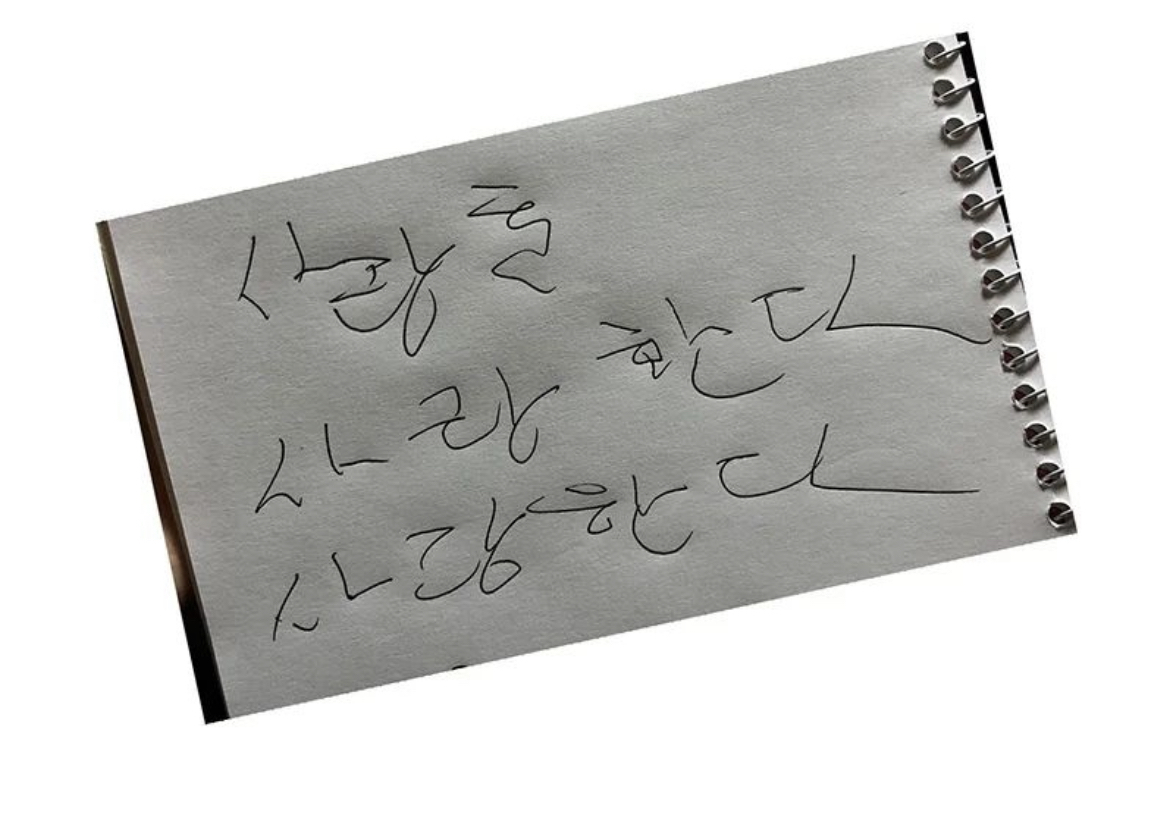 사랑들
사랑한다
사랑한다